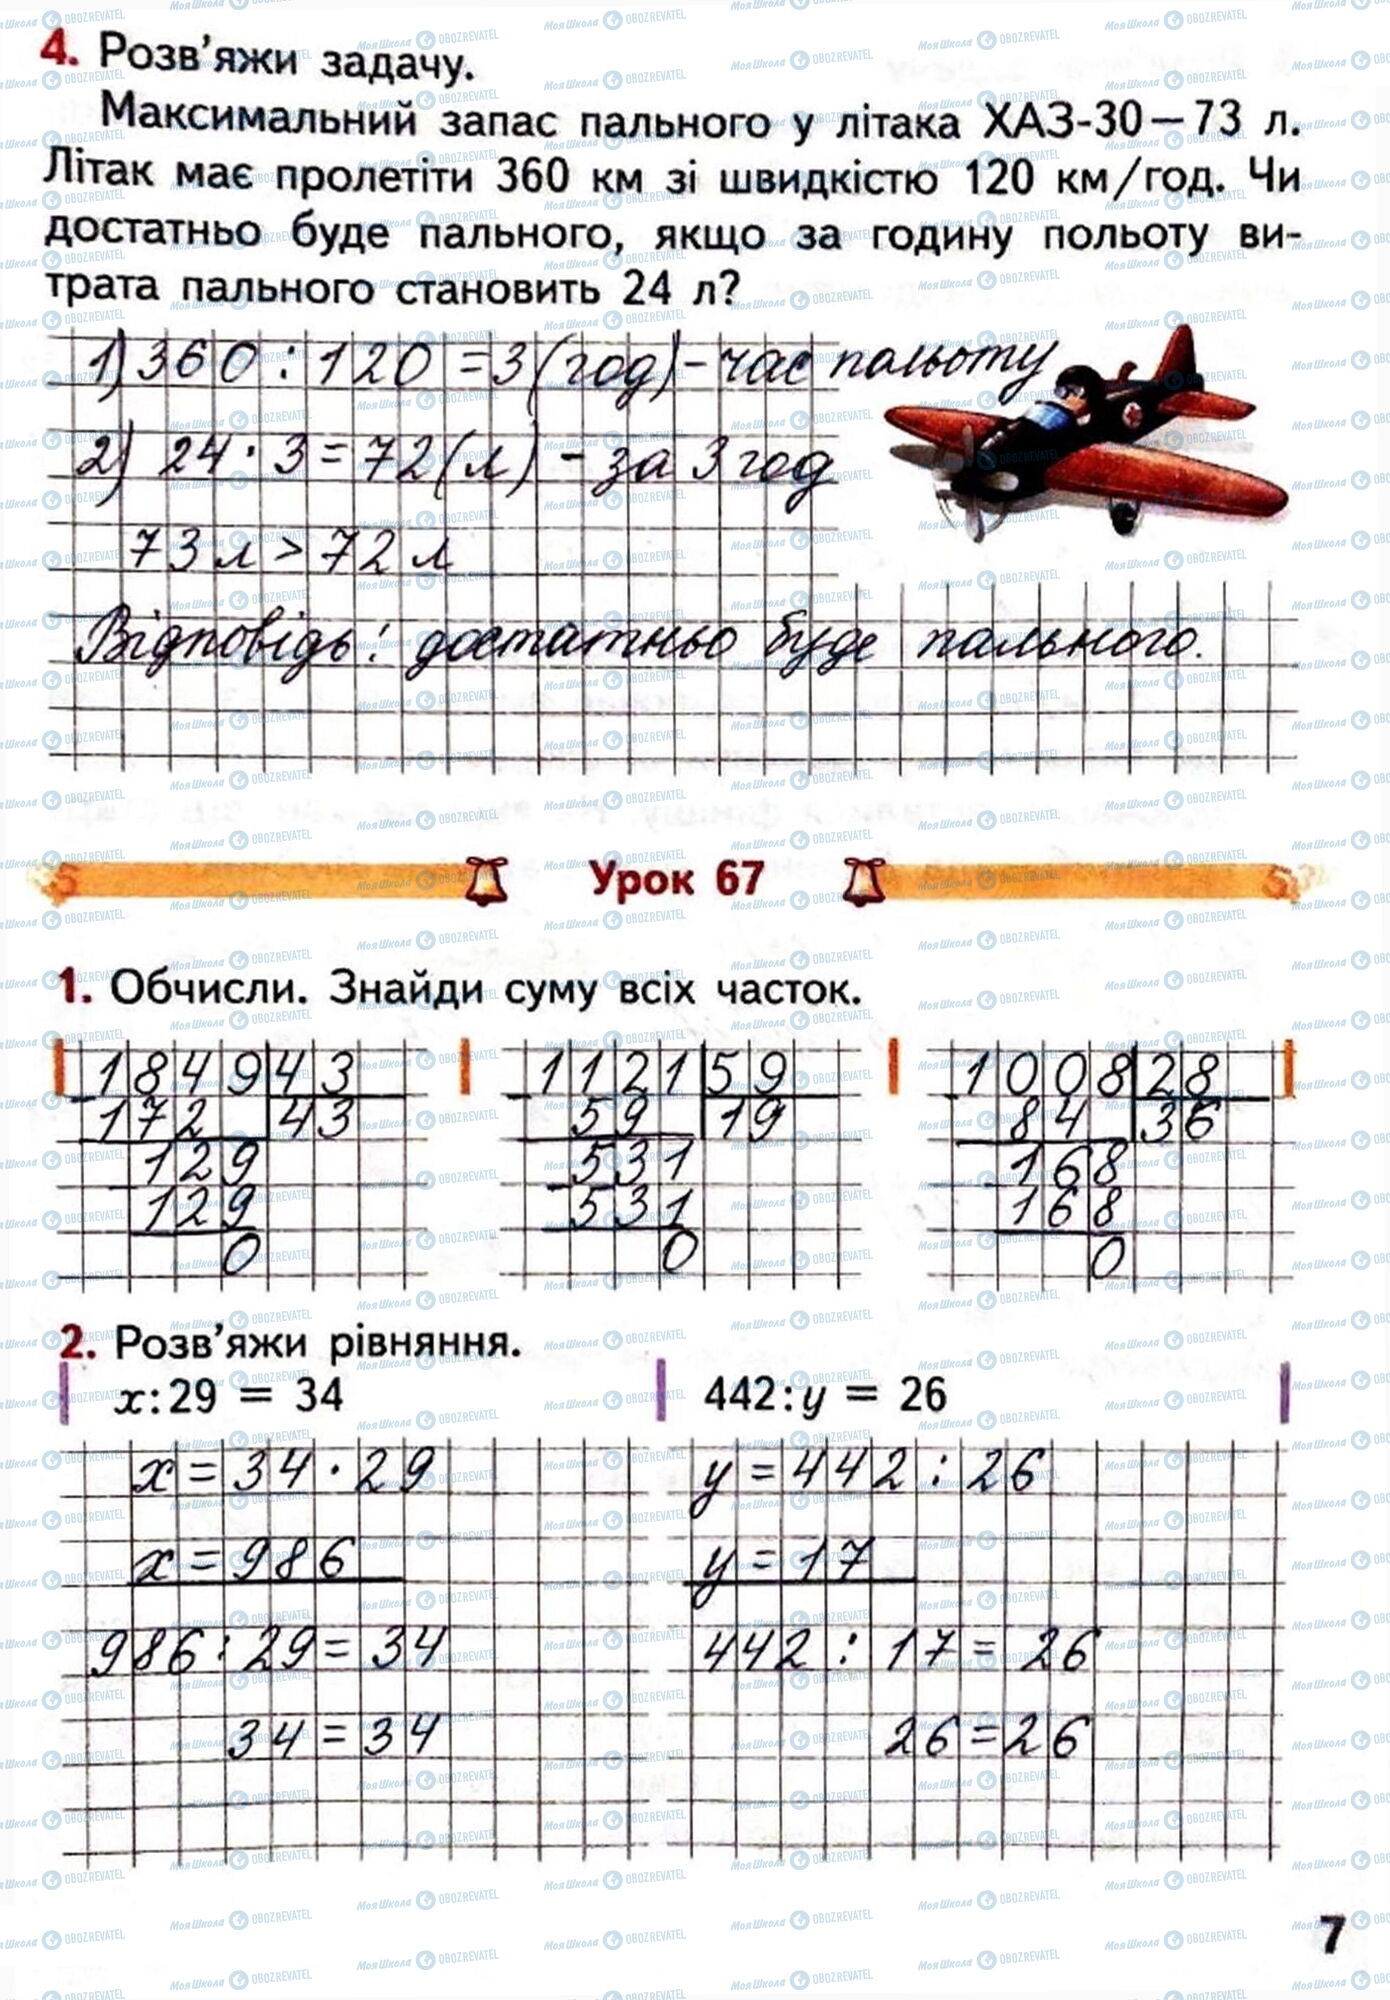 4. Розв'яжи задачу.
Максимальний запас пального у літака ХАЗ-30—73 л.
Літак має пролетіти 360 км зі швидкістю 120 км/год. Чи
достатньо буде пального, якщо за годину польоту ви-
трата пального становить 24 л?
1) 360 : 120 = 3 (год) - час польоту
2) 24 · 3 = 72 (л) - за 3 год
73 л > 72 л
Відповідь: достатньо буде пального.
Урок 67
1. Обчисли. Знайди суму всіх часток.
1849 43 1121 59 1008 28
172 43 59 19 84 36
129 531 168
129 531 168
0 0 0
2. Розв'яжи рівняння.
x:29 = 34 442:y = 26
x = 34 · 29 y = 442 : 26
x = 986 y = 17
986 : 29 = 34 442 : 17 = 26
34 = 34 26 = 26
7
МояШкола OBOZREVATEL